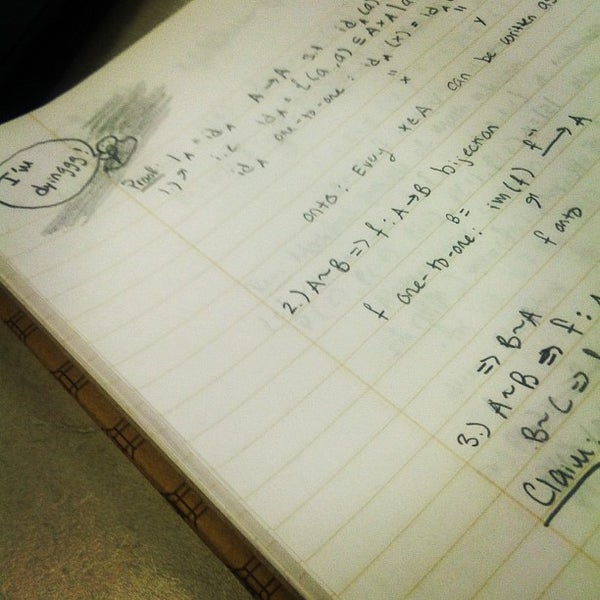 I'm
dyinggg!
Proof: 1A = idA
1.) ⇒ A → A s.t. idA(a)
i.e. idA = {(a,a) ∈ A×A | a
idA one-to-one: idA(x) = idA
" "
x y
onto: Every x∈A can be written as
2.) A~B => f: A→B bijection
B=
f one-to-one: im(f) f⁻¹ → A
f onto
=> B~A
3.) A~B => f: A
B~C =>
Claim: